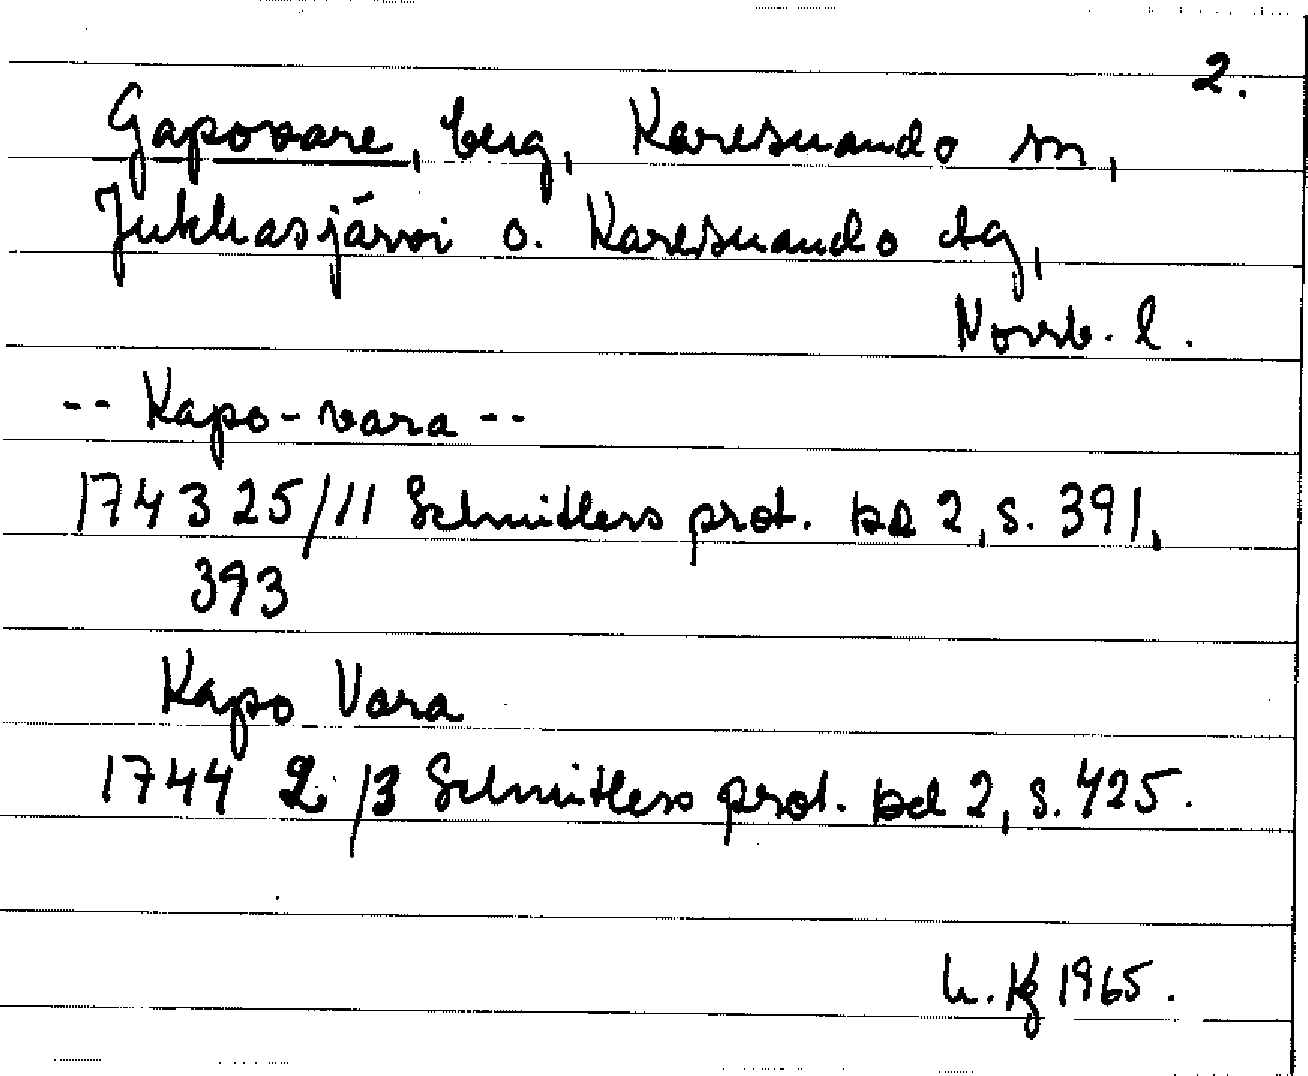 2.
Gapovare, berg, Karesuando sn,
Jukkasjärvi o. Karesuando tg,
Norrb. l.
-- Kapo-vara --
1743 25/11 Schnitlers prot. bd 2, s. 391,
393
Kapo Vara
1744 2/3 Schnitlers prot. bd 2, s. 425.
1965.